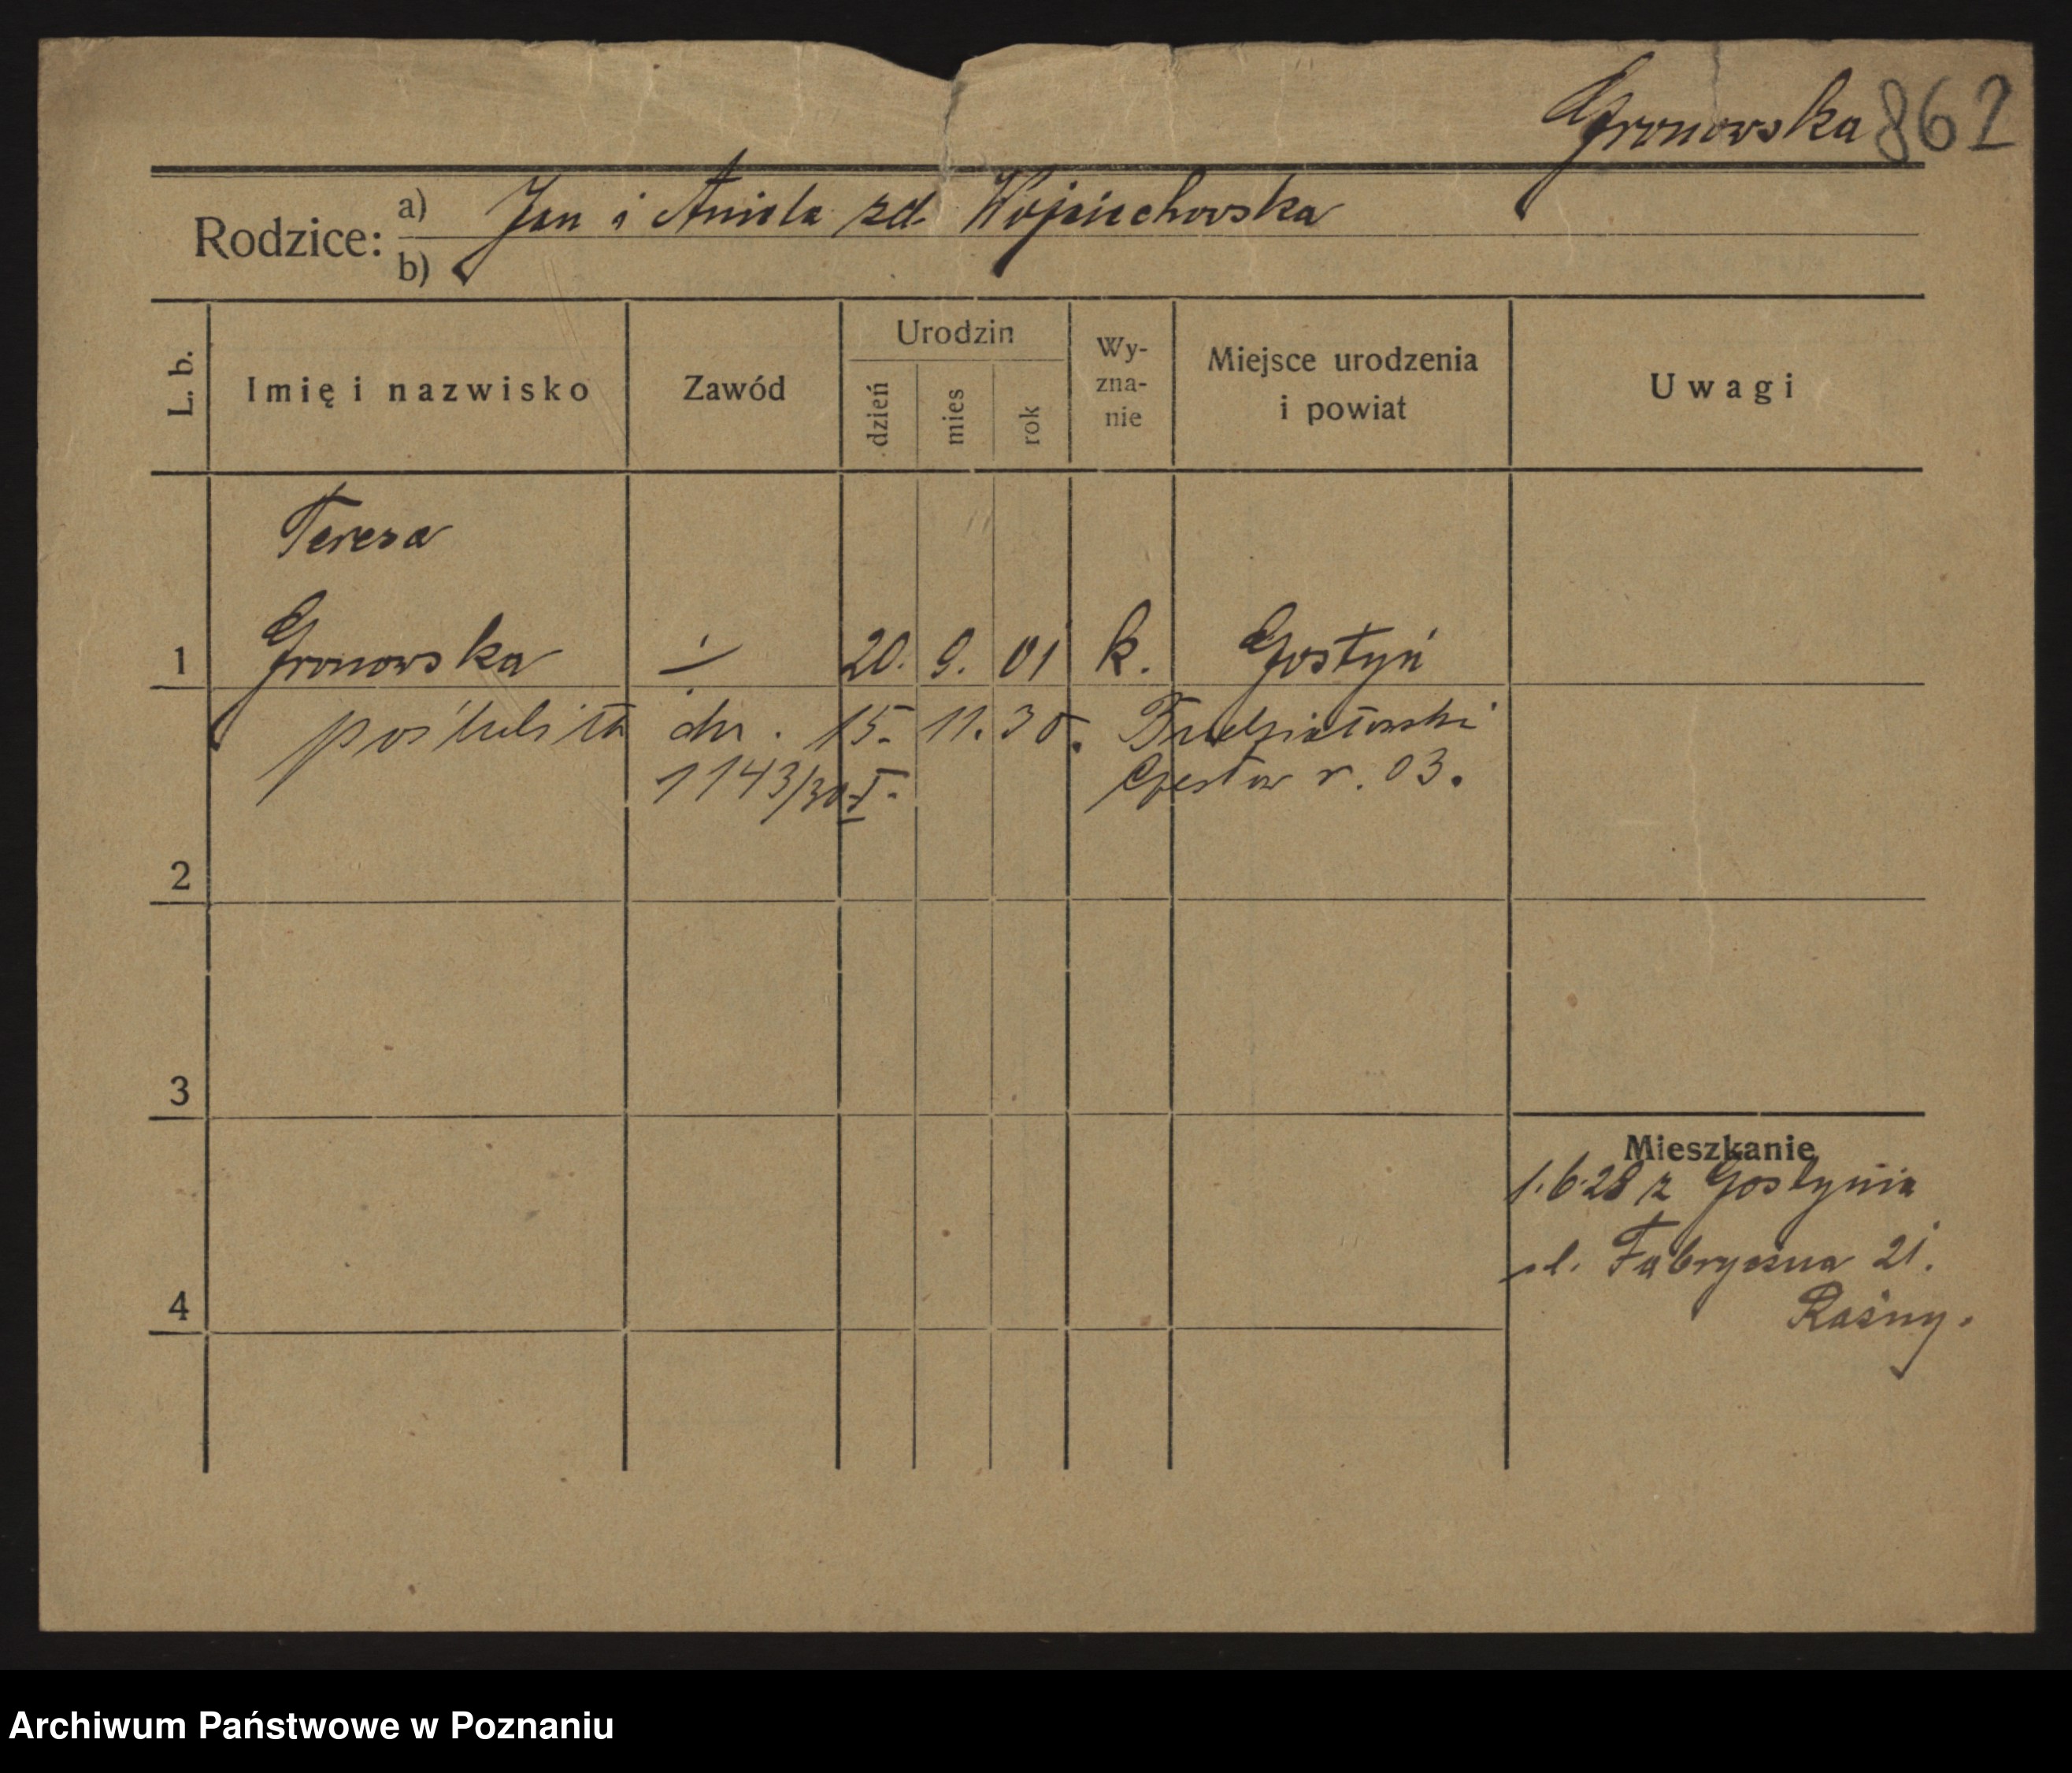 Gronowska 862
Rodzice: a) Jan i Aniela zd. Wojciechowska
b)
L. b. Imię i nazwisko Zawód Urodzin dzień mies rok Wy-zna-nie Miejsce urodzenia i powiat Uwagi
Teresa
1 Gronowska 20. 9. 01 k. Gostyń
poślubiła dn. 15. 11. 30.
1143/30 I. Czesław r. 03.
2
3
Mieszkanie
1.6.28 z Gostynia
ul. Fabryczna 21.
4
Archiwum Państwowe w Poznaniu